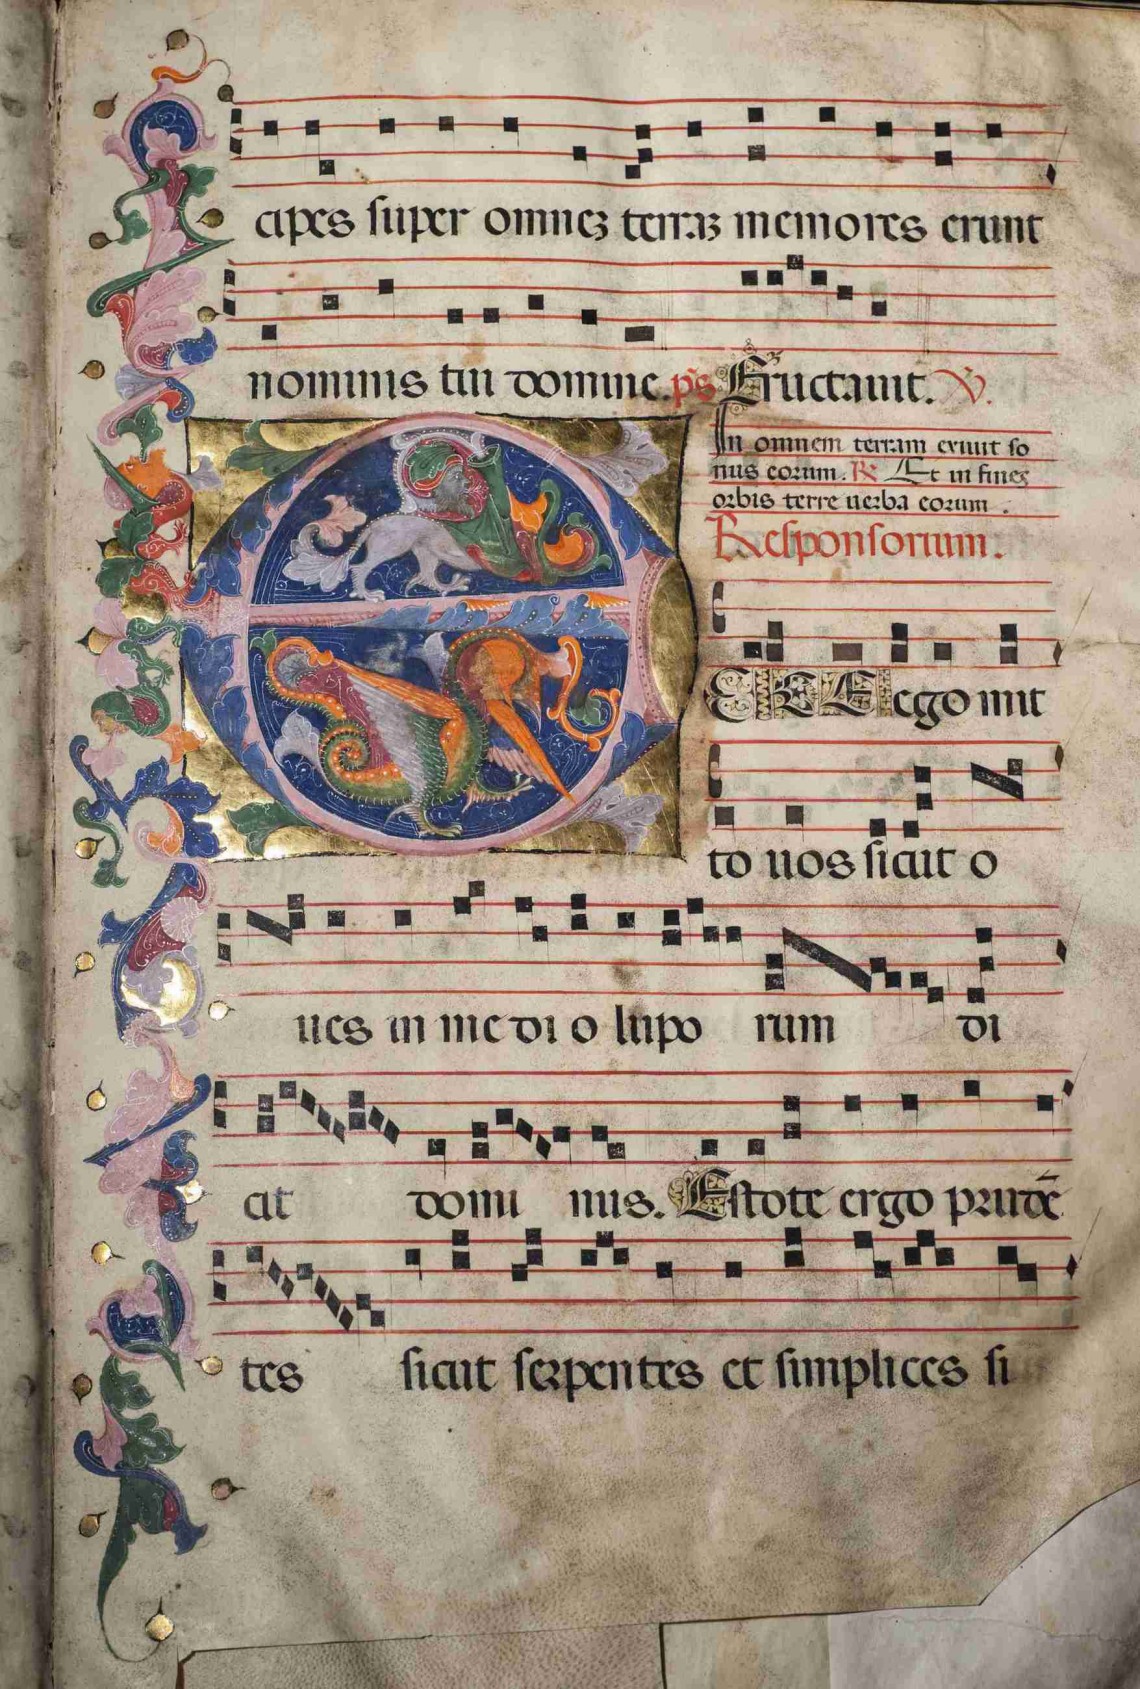 cipes super omnez terraz memores erunt
nominis tui domine. ps Eructauit. V.
In omnem terram exiuit so
nus eorum. R Et in fines
orbis terre uerba eorum.
Responsorium.
ECCE ego mit
to uos sicut o
ues in medi o lupo rum di
cit domi nus. Estote ergo prudē
tes sicut serpentes et simplices si